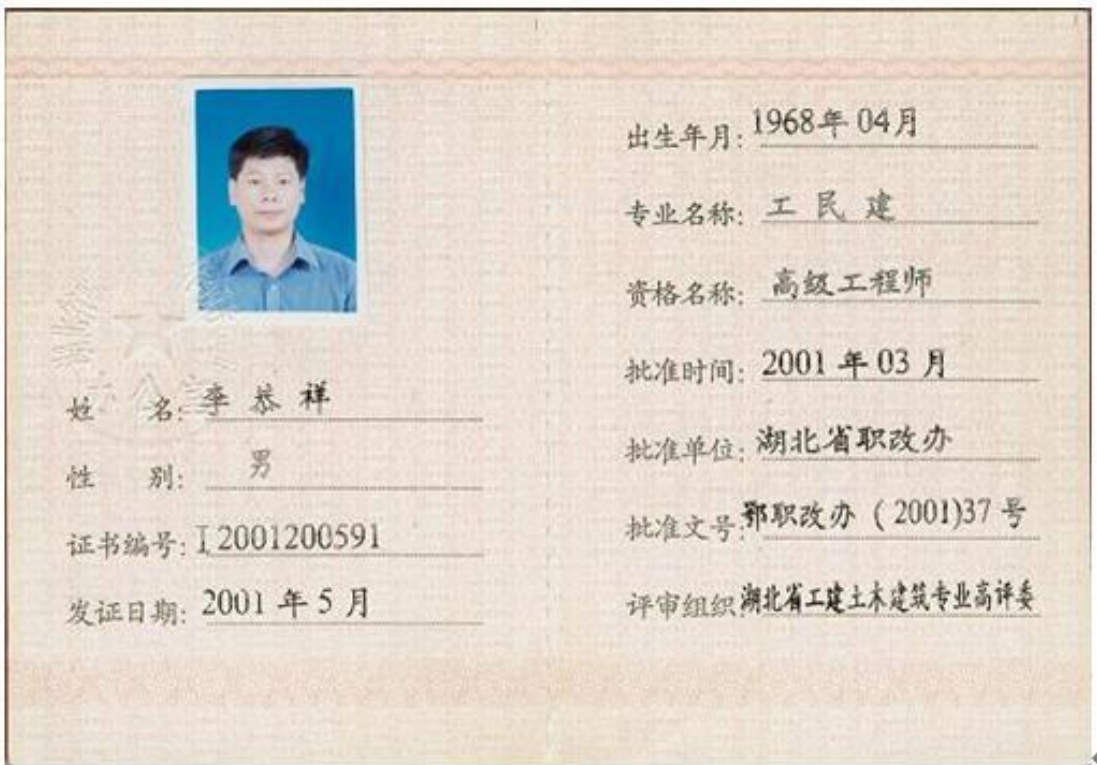 姓 名: 李恭祥
性 别: 男
证书编号: I 2001200591
发证日期: 2001 年 5 月
出生年月: 1968年 04月
专业名称: 工 民 建
资格名称: 高级工程师
批准时间: 2001 年 03 月
批准单位: 湖北省职改办
批准文号: 鄂职改办 ( 2001)37 号
评审组织 湖北省工建土木建筑专业高评委